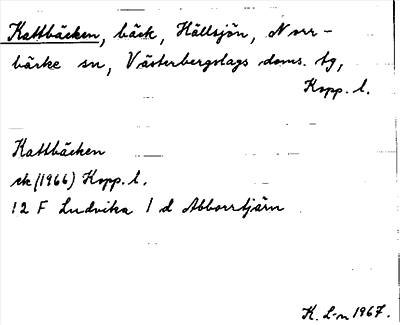 Kattbäcken, bäck, Hällsjön, Norr-
bärke sn, Västerbergslags doms. tg,
Kopp. l.
Kattbäcken
ek (1966) Kopp. l.
12 F Ludvika 1 d Abborrtjärn
K. L-n 1967.